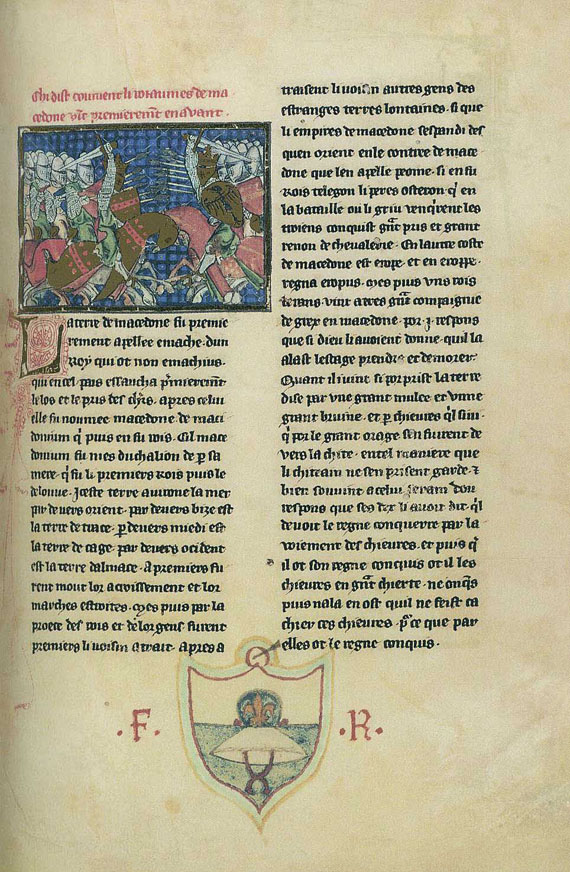 Chi dist coment li roiaumes de ma
cedone vīt premieremt en avant.
La terre de macedone fu premie
rement apellee emache. dun
Roy qui ot non emachius.
qui en cel pais essaucha p̄mierem̄t
le los et le pris des
apres celui
elle fu noumee macedone. de maci
donium q̄ puis en fu rois. Cil mace
donium fu nies duchalion de p sa
mere. q̄ fu li premiers Rois puis le
deluive. Iceste terre avirone la mer
par devers orient. par devers bize est
la terre de trace. p devers miedi est
la terre de cage. par devers occident
est la terre dalmace. A premiers fu
rent mout lor acroissement et lor
marches estroites. Mes puis par la
proece des rois et de lor gens furent
premiers li voisin atrait. Apres a
traisent li voisin autres gens des
estranges terres lontaines. si que
li empires de macedone sespandi des
quen orient. en le contree de mace
done que len apelle peone. si en fu
Rois telegon li peres osteron. q̄ en
la bataille ou li griu venq̄rent les
troiens conquist gn̄t pris et grant
renon de chevalerie. En lautre coste
de macedone est erope. et en eroppe.
regna eropus. Mes puis uns rois
vint a tres gn̄t compaignie
de grex en macedone. por .j. respons
que si dieu li avoient donne. quil la
alast lestage prendre et demorer.
Quant il i vint si porprist la terre
dise par une grant et une
grant bruine. et p chieures q̄l sivi
q̄ por le grant orage sen fuirent de
vers la chite. en tel maniere que
li chiteain ne sen prisent garde. ⁊
bien souvint a celui don
respons que ses dex li avoit dit. q̄l
devoit le regne conquerre par la
voiement des chieures. et puis q̄
il ot son regne conquis ot il les
chieures en gn̄t chierte. ne onq̄s
puis nala en ost quil ne feist ca
chier ces chieures. p ce que par
elles ot le regne conquis.
.F. .R.